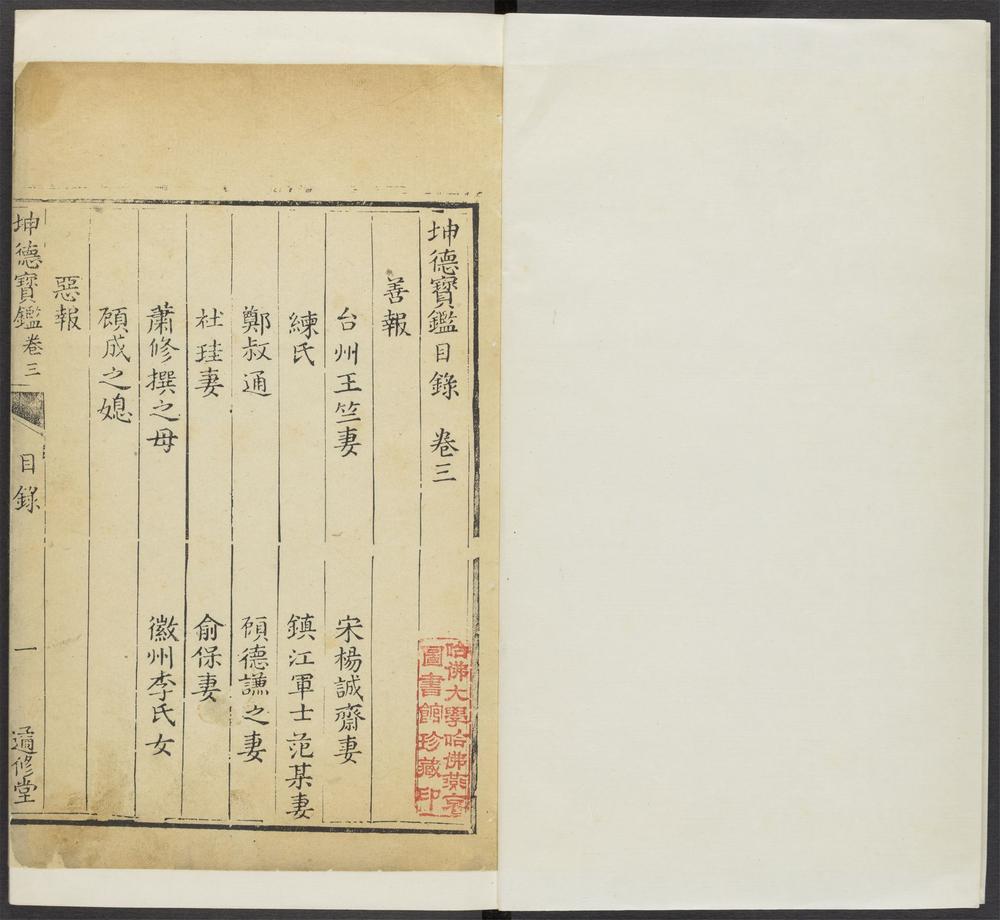 坤德寶鑑目錄 卷三
善報
台州王竺妻 宋楊誠齋妻
練氏 鎮江軍士范某妻
鄭叔通 顧德謙之妻
杜珪妻 俞保妻
蕭修撰之母 徽州李氏女
顧成之媳
惡報
坤德寶鑑卷三 目錄 一 遹修堂
哈佛大學哈佛燕京
圖書館珍藏印